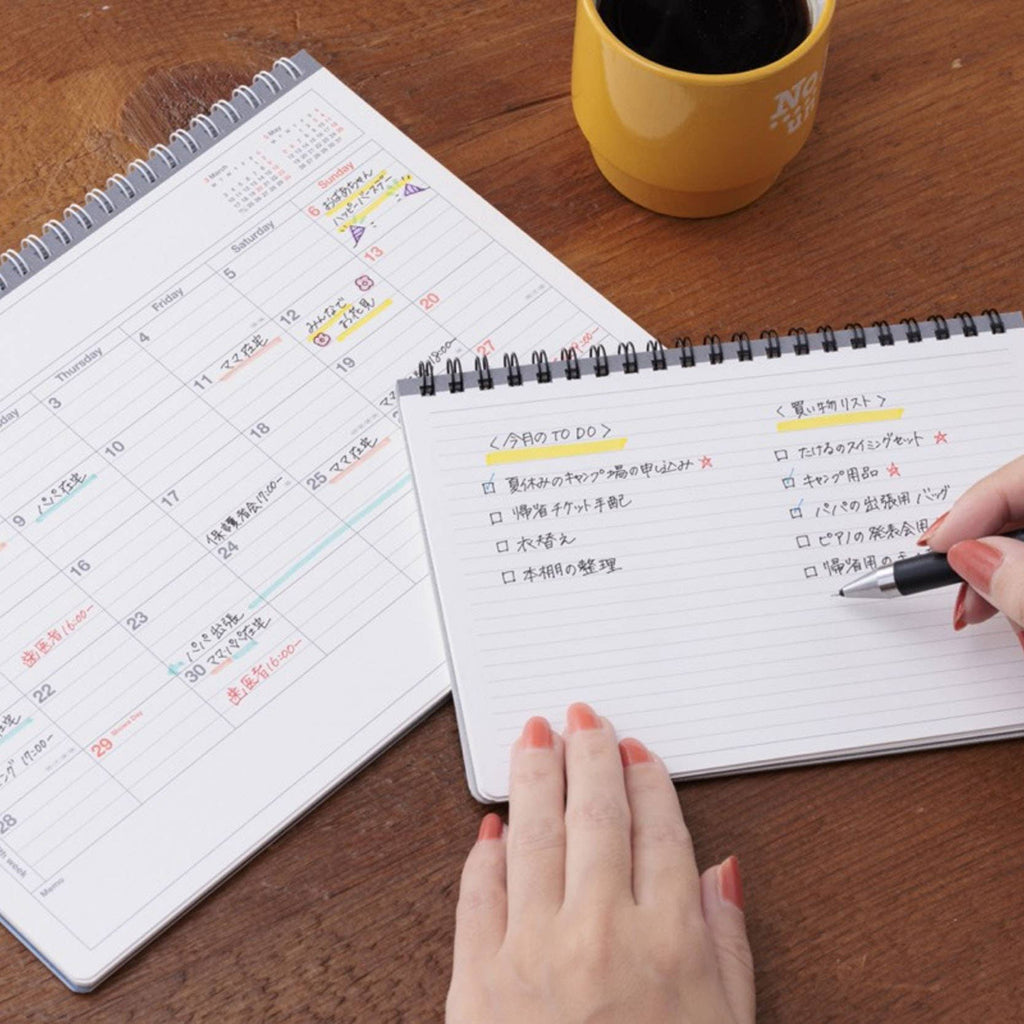 3 March
5 May
Thursday
Friday
Saturday
Sunday
3
4
5
6
おばあちゃん
ハッピーバースデー
9
パパ在宅
10
11
ママ在宅
12
みんなで
お花見
13
16
17
18
19
20
歯医者16:00〜
22
23
24
保護者会17:00〜
25
ママ在宅
27
パパ出張
28
29 Showa Day
30
ママパパ在宅
歯医者16:00〜
17:00〜
Memo
<今月のTO DO>
夏休みのキャンプ場の申し込み
帰省チケット手配
衣替え
本棚の整理
<買い物リスト>
たけるのスイミングセット
キャンプ用品
パパの出張用バッグ
ピアノの発表会用
帰省用の